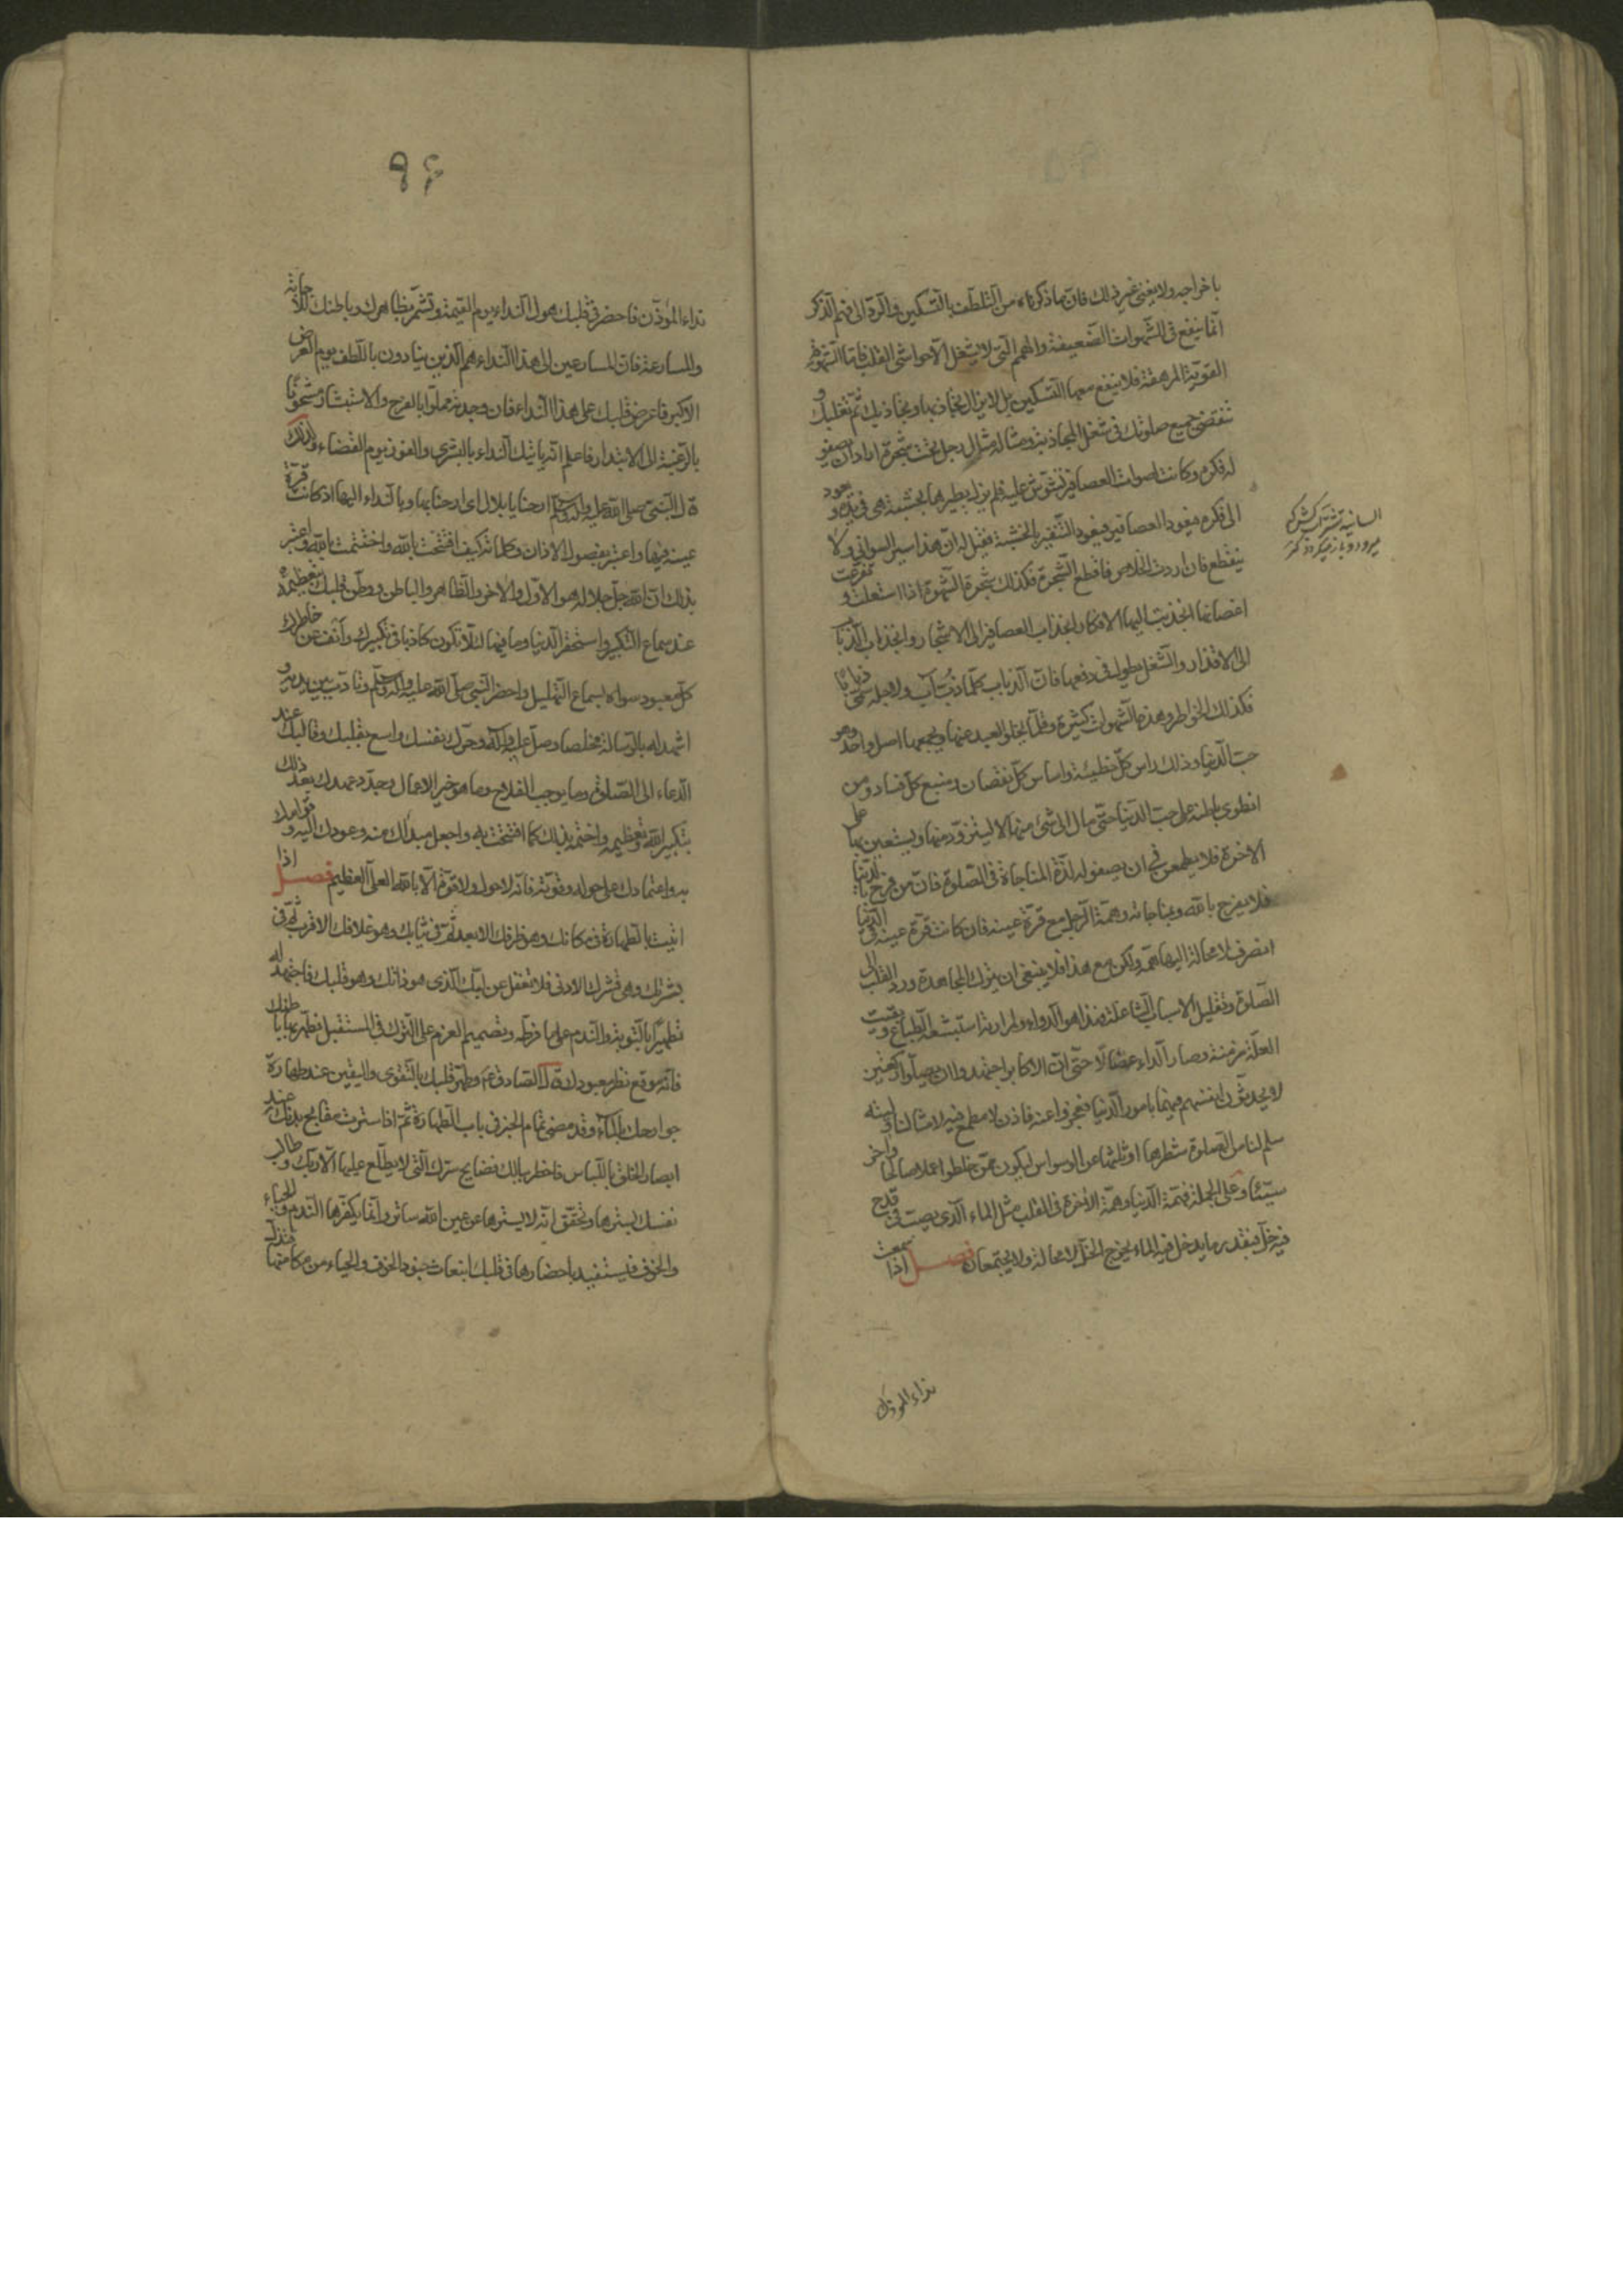 باخراجه ولا يغنى غير ذلك فانّ ما ذكرناه من التلطف بالتسكين والردّ الى فهم الذكر
انّما ينفع فى الشهوات الضعيفة والهمم التى لا يشغل الا حواشى القلب فامّا الشهوة
القوية المرهقة فلا ينفع معها التسكين بل لا يزال تجاذبها وتجاذبك ثم تغلبك و
تنقضى جميع صلوتك فى شغل المجاذبة ومثاله مثال رجل تحت شجرة اراد ان يصفو
له فكره وكانت اصوات العصافير تشوش عليه فلم يزل يطيرها بخشبة هى فى يده و يعود
الى فكره فيعود العصافير فيعود التنفير بالخشبة فقيل له ان هذا سير السوانى ولا
ينقطع فان اردت الخلاص فاقطع الشجرة فكذلك شجرة الشهوة اذا استعلت و تفرعت
اغصانها انجذبت اليها الافكار انجذاب العصافير الى الاشجار وانجذاب الذباب
الى الاقذار والشغل يطول فى دفعها فان الذباب كلما ذبّ آب ولاجله سمّى ذبابا
فكذلك الخواطر وهذه الشهوات كثيرة وقلّما يخلو العبد عنها ويجمعها اصل واحد وهو
حب الدنيا وذلك راس كل خطيئة واساس كل نقصان ومنبع كل فساد ومن
انطوى باطنه على حب الدنيا حتى مال الى شئ منها لا ليتزود منها ويستعين بها على
الاخرة فلا يطمعن فى ان يصفو له لذة المناجاة فى الصلوة فان من فرح بالدنيا
فلا يفرح بالله وبمناجاته وهمّة الرجل مع قرة عينه فان كانت قرة عينه فى الدنيا
انصرف لا محالة اليها همّه ولكن مع هذا فلا ينبغى ان يترك المجاهدة ورد القلب الى
الصلوة وتقليل الاسباب الشاغلة فهذا هو الدواء ولمرارته استبشعه الطباع وبقيت
العلة مزمنة وصار الداء عضالا حتى ان الاكابر اجتهدوا ان يصلوا ركعتين
لا يحدثون انفسهم فيها بامور الدنيا فعجزوا عنه فاذن لا مطمع فيه لامثالنا وليته
سلم لنا من الصلوة شطرها او ثلثها عن الوسواس ليكون ممن خلطوا عملا صالحا واخر
سيئا وعلى الجملة فهمّة الدنيا وهمّة الاخرة فى القلب مثل الماء الذى يصب فى قدح
فيه خلّ فبقدر ما يدخل فيه الماء يخرج الخل لا محالة ولا يجتمعان فصل اذا سمعت
نداء المؤذن
السانية شتر آب كش كه
ميرود و باز ميگردد
٩٦
نداء المؤذّن فاحضر فى قلبك هول النداء يوم القيمة وتشمّر بظاهرك وباطنك للاجابة
والمسارعة فان المسارعين الى هذا النداء هم الذين ينادون باللطف يوم العرض
الاكبر فاعرض قلبك على هذا النداء فان وجدته مملوا بالفرح والاستبشار مشحونا
بالرغبة الى الابتدار فاعلم انه ياتيك النداء بالبشرى والفوز يوم القضاء ولذلك
قال النبى صلى الله عليه واله وسلم ارحنا يا بلال اى ارحنا بها وبالنداء اليها اذ كانت قرة
عينه فيها واعتبر بفصول الاذان وكلماته كيف افتتحت بالله واختتمت بالله واعتبر
بذلك ان الله جل جلاله هو الاول والاخر والظاهر والباطن ووطّن قلبك بتعظيمه
عند سماع التكبير واستحقر الدنيا وما فيها لئلا تكون كاذبا فى تكبيرك وانف عن خاطرك
كل معبود سواه بسماع التهليل واحضر النبى صلى الله عليه واله وسلم وتادّب بين يديه و
اشهد له بالرسالة مخلصا وصل عليه واله وحرّك نفسك واسع بقلبك وقالبك عند
الدعاء الى الصلوة وما يوجب الفلاح وما هو خير الاعمال وجدّد عهدك بعد ذلك
بتكبير الله وتعظيمه واختمه بذلك كما افتتحت به واجعل مبداك منه وعودك اليه و قوامك
به واعتمادك على حوله وقوته فانه لا حول ولا قوة الا بالله العلى العظيم فصل اذا
اتيت بالطهارة فى مكانك وهو ظرفك الابعد ثم فى ثيابك وهو غلافك الاقرب ثم فى
بشرتك وهى قشرك الادنى فلا تغفل عن لبّك الذى هو ذاتك وهو قلبك فاجتهد له
تطهيرا بالتوبة والندم على ما فرط وتصميم العزم على الترك فى المستقبل فطهّر بها باطنك
فانه موقع نظر معبودك قال الصادق ع وطهّر قلبك بالتقوى واليقين عند طهارة
جوارحك بالماء وقد مضى تمام الخبر فى باب الطهارة ثم اذا سترت مقابح بدنك عند
ابصار الخلق باللباس فاخطر ببالك فضايح سرّك التى لا يطلع عليها الا ربّك وطالب
نفسك بسترها وتحقق انه لا يسترها عن عين الله ساتر وانما يكفّرها الندم والحياء
والخوف فيستفيد باحضارها فى قلبك انبعاث جنود الخوف والحياء من مكامنها فتذلّ